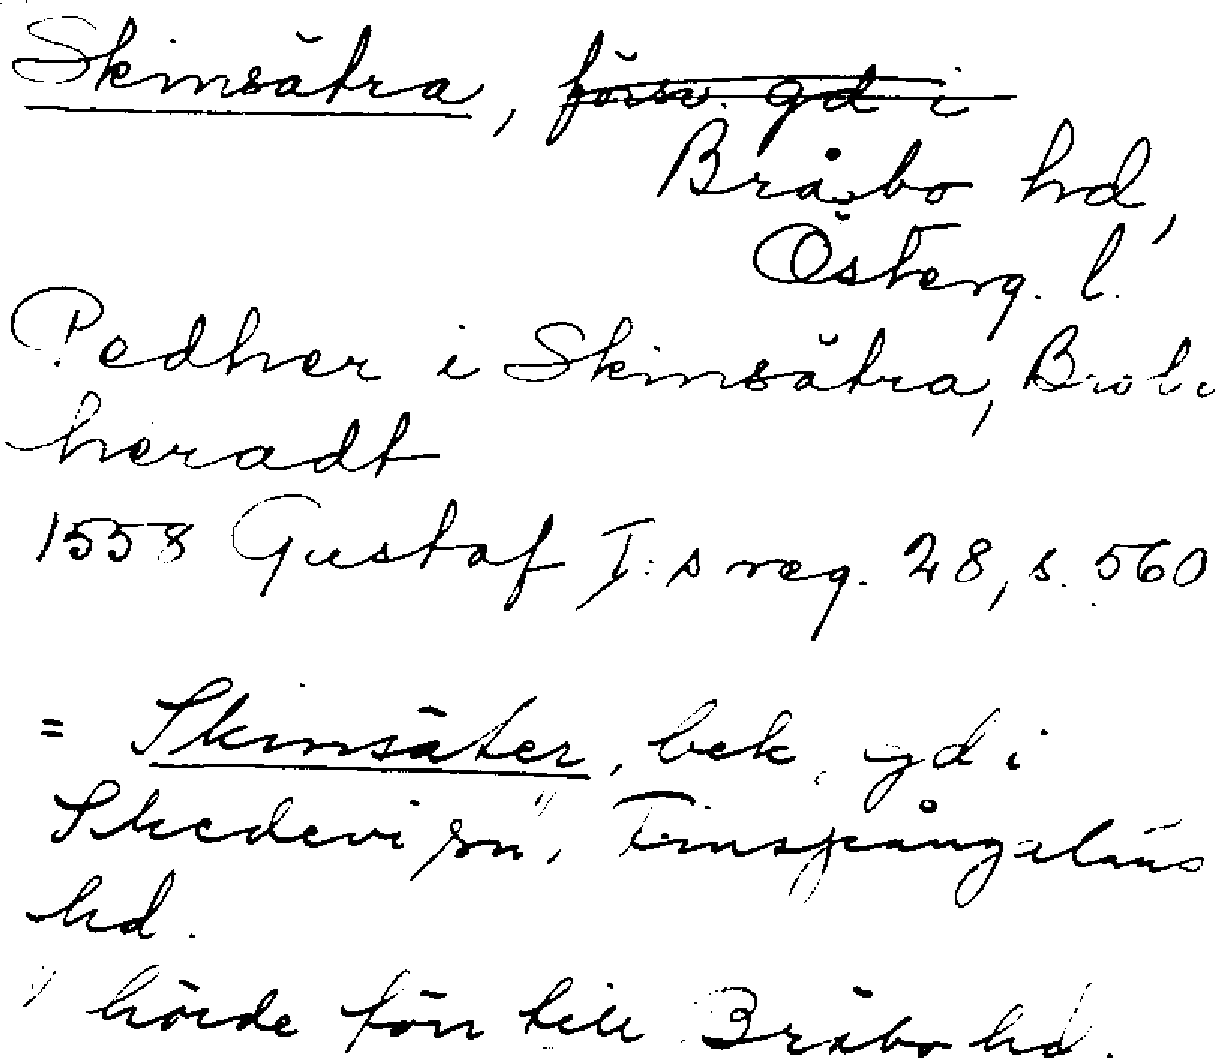 Skinsätra, försv. gd i
Bråbo hd,
Österg. l.
Pedher i Skinsätra, Brobo
heradt
1558 Gustaf I:s reg. 28, s. 560
= Skinsäter, bek. gd i
Skedevi sn¹⁾, Finspångaläns
hd.
¹⁾ hörde förr till Bråbo hd.